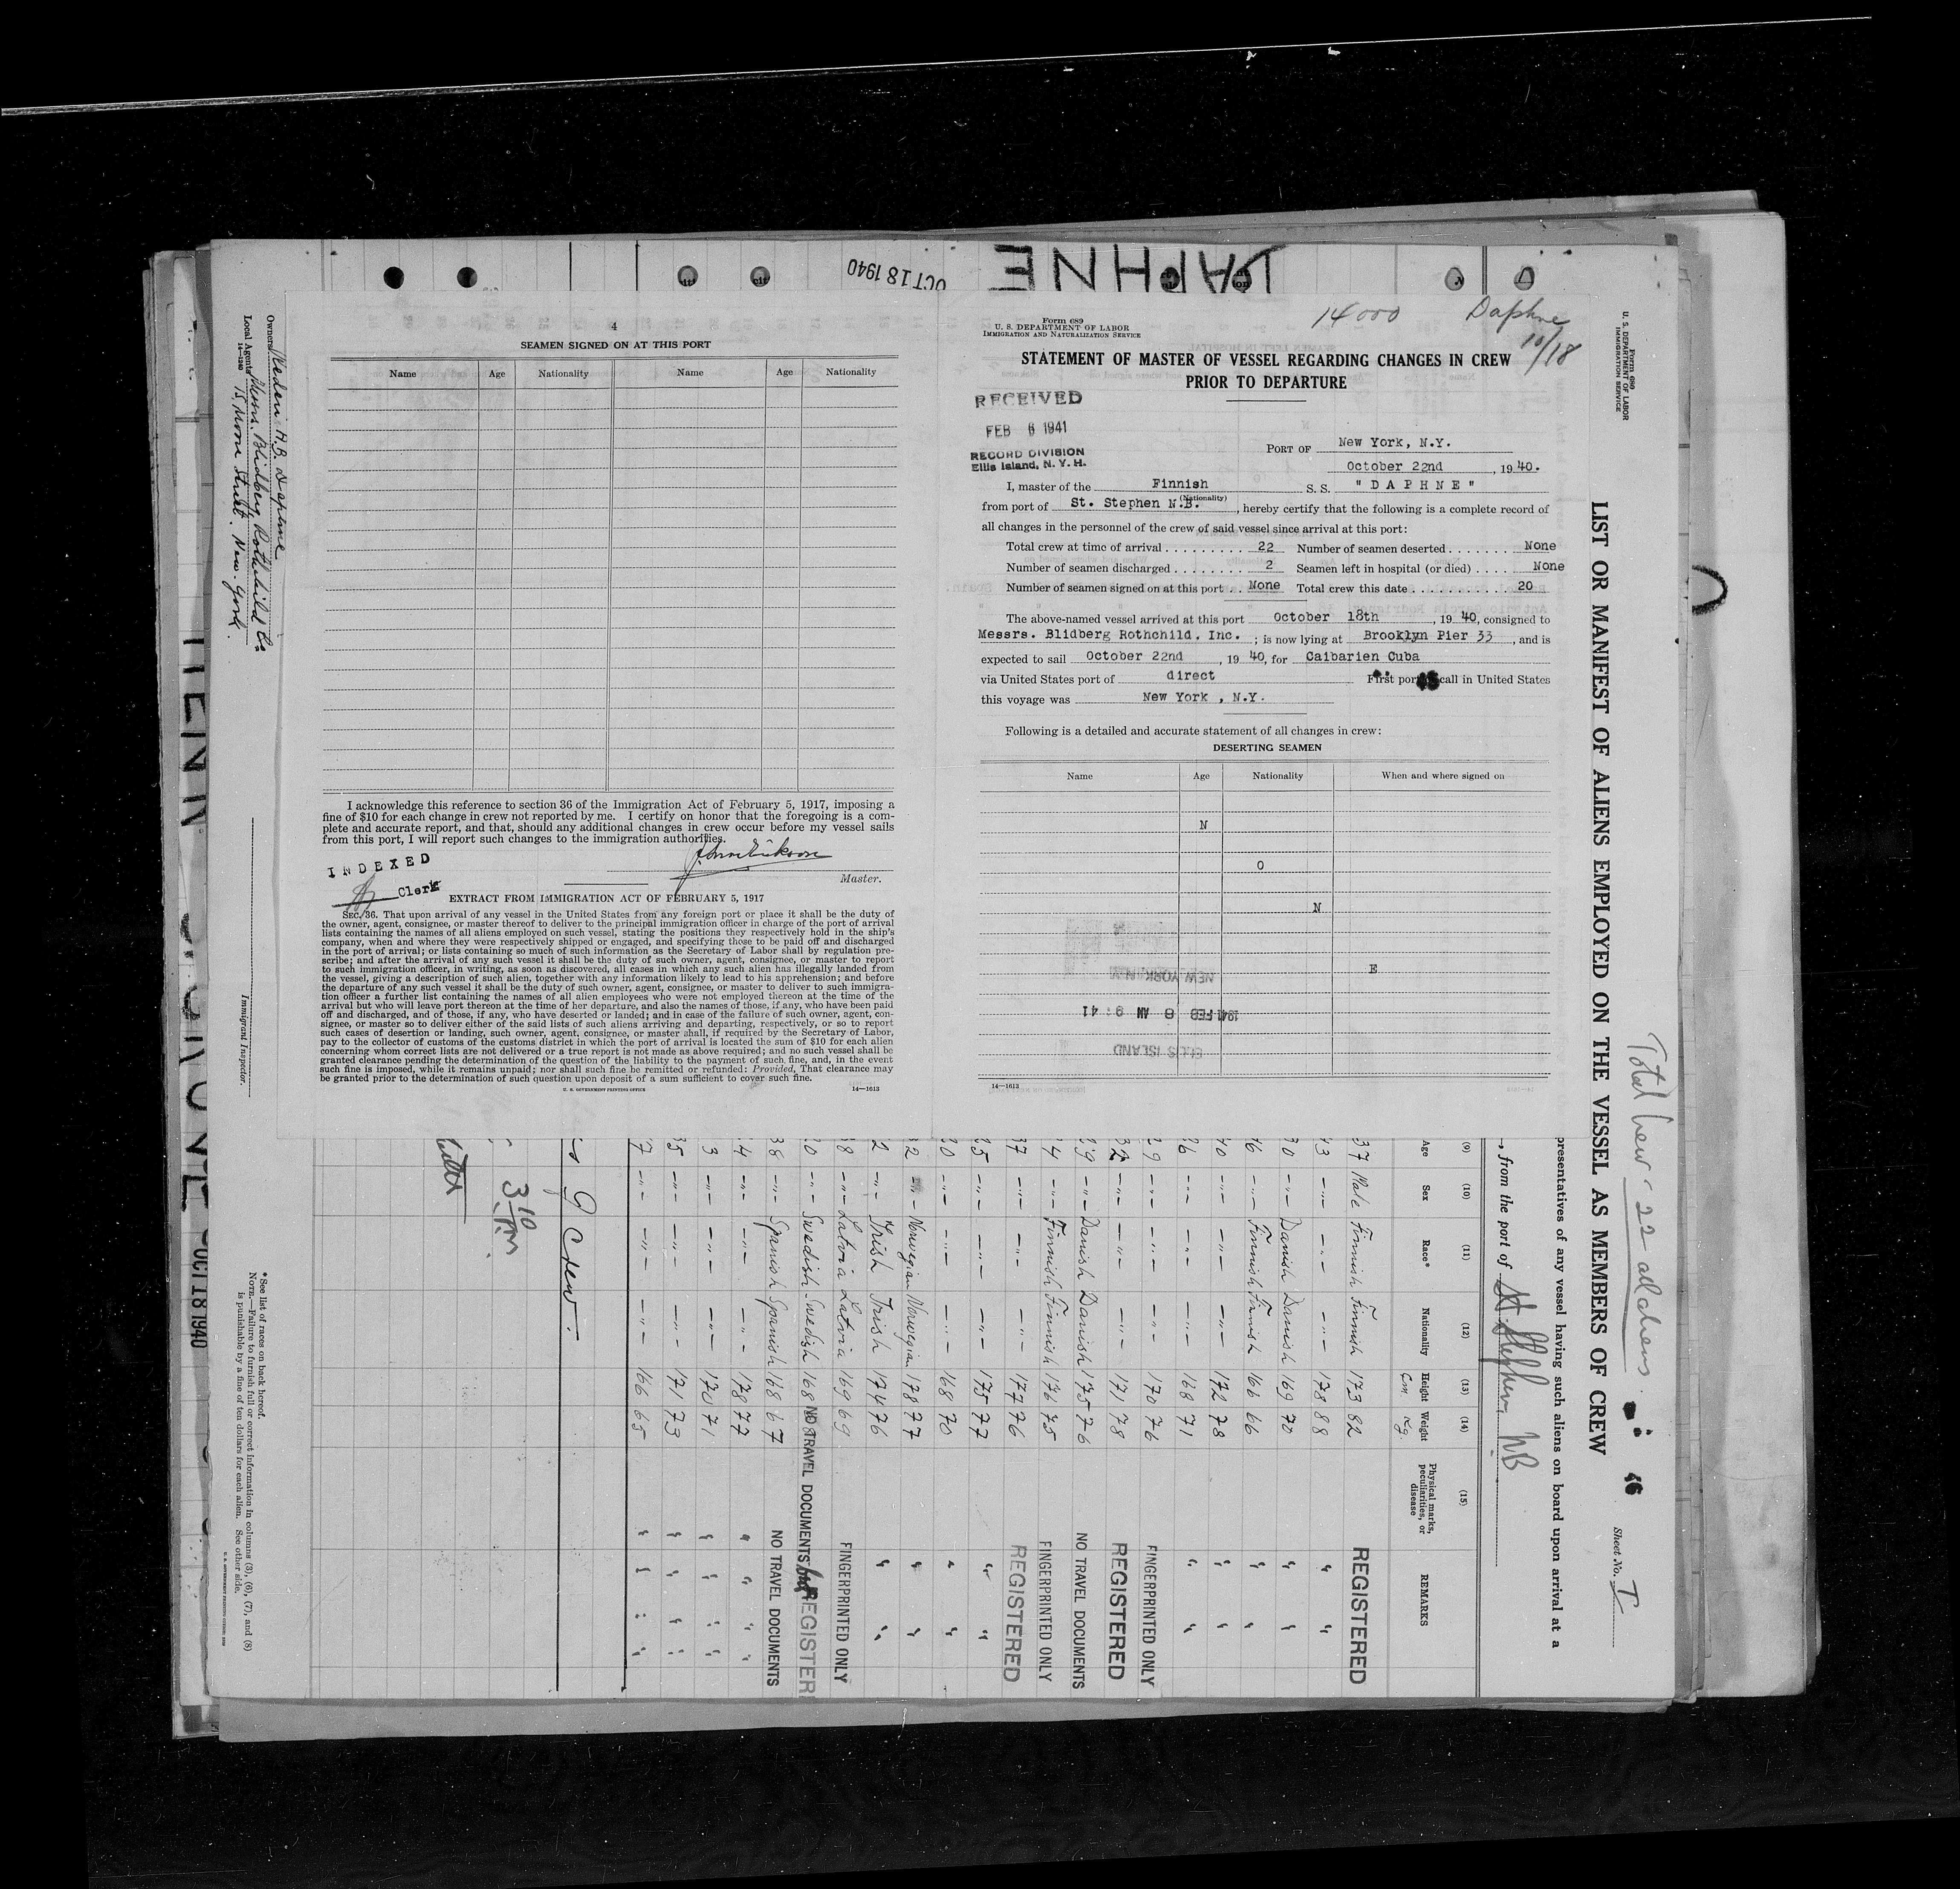 DAPHNE
OCT 18 1940
14000
Daphne
10/18
4
SEAMEN SIGNED ON AT THIS PORT
Name Age Nationality Name Age Nationality
I acknowledge this reference to section 36 of the Immigration Act of February 5, 1917, imposing a
fine of $10 for each change in crew not reported by me. I certify on honor that the foregoing is a com-
plete and accurate report, and that, should any additional changes in crew occur before my vessel sails
from this port, I will report such changes to the immigration authorities.
Master.
INDEXED
Clerk
EXTRACT FROM IMMIGRATION ACT OF FEBRUARY 5, 1917
SEC. 36. That upon arrival of any vessel in the United States from any foreign port or place it shall be the duty of
the owner, agent, consignee, or master thereof to deliver to the principal immigration officer in charge of the port of arrival
lists containing the names of all aliens employed on such vessel, stating the positions they respectively hold in the ship's
company, when and where they were respectively shipped or engaged, and specifying those to be paid off and discharged
in the port of arrival; or lists containing so much of such information as the Secretary of Labor shall by regulation pre-
scribe; and after the arrival of any such vessel it shall be the duty of such owner, agent, consignee, or master to report
to such immigration officer, in writing, as soon as discovered, all cases in which any such alien has illegally landed from
the vessel, giving a description of such alien, together with any information likely to lead to his apprehension; and before
the departure of any such vessel it shall be the duty of such owner, agent, consignee, or master to deliver to such immigra-
tion officer a further list containing the names of all alien employees who were not employed thereon at the time of the
arrival but who will leave port thereon at the time of her departure, and also the names of those, if any, who have been paid
off and discharged, and of those, if any, who have deserted or landed; and in case of the failure of such owner, agent, con-
signee, or master so to deliver either of the said lists of such aliens arriving and departing, respectively, or so to report
such cases of desertion or landing, such owner, agent, consignee, or master shall, if required by the Secretary of Labor,
pay to the collector of customs of the customs district in which the port of arrival is located the sum of $10 for each alien
concerning whom correct lists are not delivered or a true report is not made as above required; and no such vessel shall be
granted clearance pending the determination of the question of the liability to the payment of such fine, and, in the event
such fine is imposed, while it remains unpaid; nor shall such fine be remitted or refunded: Provided, That clearance may
be granted prior to the determination of such question upon deposit of a sum sufficient to cover such fine.
U. S. GOVERNMENT PRINTING OFFICE 14—1613
Form 689
U. S. DEPARTMENT OF LABOR
IMMIGRATION AND NATURALIZATION SERVICE
STATEMENT OF MASTER OF VESSEL REGARDING CHANGES IN CREW
PRIOR TO DEPARTURE
RECEIVED
FEB 6 1941
RECORD DIVISION
Ellis Island, N. Y. H.
PORT OF New York, N.Y.
October 22nd, 1940.
I, master of the Finnish S. S. "DAPHNE"
(Nationality)
from port of St. Stephen N.B., hereby certify that the following is a complete record of
all changes in the personnel of the crew of said vessel since arrival at this port:
Total crew at time of arrival 22 Number of seamen deserted None
Number of seamen discharged 2 Seamen left in hospital (or died) None
Number of seamen signed on at this port None Total crew this date 20
The above-named vessel arrived at this port October 18th, 1940, consigned to
Messrs. Blidberg Rothchild. Inc.; is now lying at Brooklyn Pier 33, and is
expected to sail October 22nd, 1940, for Caibarien Cuba
via United States port of direct First port of call in United States
this voyage was New York, N.Y.
Following is a detailed and accurate statement of all changes in crew:
DESERTING SEAMEN
Name Age Nationality When and where signed on
N
O
N
E
NEW YORK, N.Y.
1941 FEB 6 AM 9:41
ELLIS ISLAND
14—1613
Form 680
U. S. DEPARTMENT OF LABOR
IMMIGRATION SERVICE
LIST OR MANIFEST OF ALIENS EMPLOYED ON THE VESSEL AS MEMBERS OF CREW
Total Crew 22 all aliens
Sheet No. 1
presentatives of any vessel having such aliens on board upon arrival at a
, from the port of St. Stephen NB
(9) (10) (11) (12) (13) (14) (15)
Age Sex Race* Nationality Height Weight Physical marks, peculiarities, or disease REMARKS
Cm. Kg.
37 Male Finnish Finnish 173 82 REGISTERED
43 -"- -"- -"- 178 88 " "
30 -"- Danish Danish 169 70 " "
46 -"- Finnish Finnish 166 66 " "
40 -"- -"- -"- 172 78 " "
26 -"- -"- -"- 168 71 " "
29 -"- -"- -"- 170 76 FINGERPRINTED ONLY
32 -"- -"- -"- 171 78 REGISTERED
29 -"- Danish Danish 175 76 NO TRAVEL DOCUMENTS
4 -"- Finnish Finnish 176 75 FINGERPRINTED ONLY
37 -"- -"- -"- 177 76 REGISTERED
5 -"- -"- -"- 175 77 " "
0 -"- -"- -"- 168 70 " "
2 -"- Norwegian Norwegian 178 77 " "
2 -"- Irish Irish 174 76 " "
8 -"- Latvia Latvia 169 69 FINGERPRINTED ONLY
0 -"- Swedish Swedish 168 NO TRAVEL DOCUMENTS REGISTERED
38 -"- Spanish Spanish 168 67 NO TRAVEL DOCUMENTS
4 -"- -"- -"- 178 77 " "
3 -"- -"- -"- 170 71 " "
35 -"- -"- -"- 171 73 " "
7 -"- -"- -"- 166 65 " "
9 Crew.
3 10 Pm
Owners Rederi A.B. Daphne
Local Agents Messrs. Blidberg Rothchild Co
15 Moore Street. New-York.
14—1240
Immigrant Inspector.
*See list of races on back hereof.
NOTE.—Failure to furnish full or correct information in columns (3), (6), (7), and (8)
is punishable by a fine of ten dollars for each alien. See other side.
OCT 18 1940